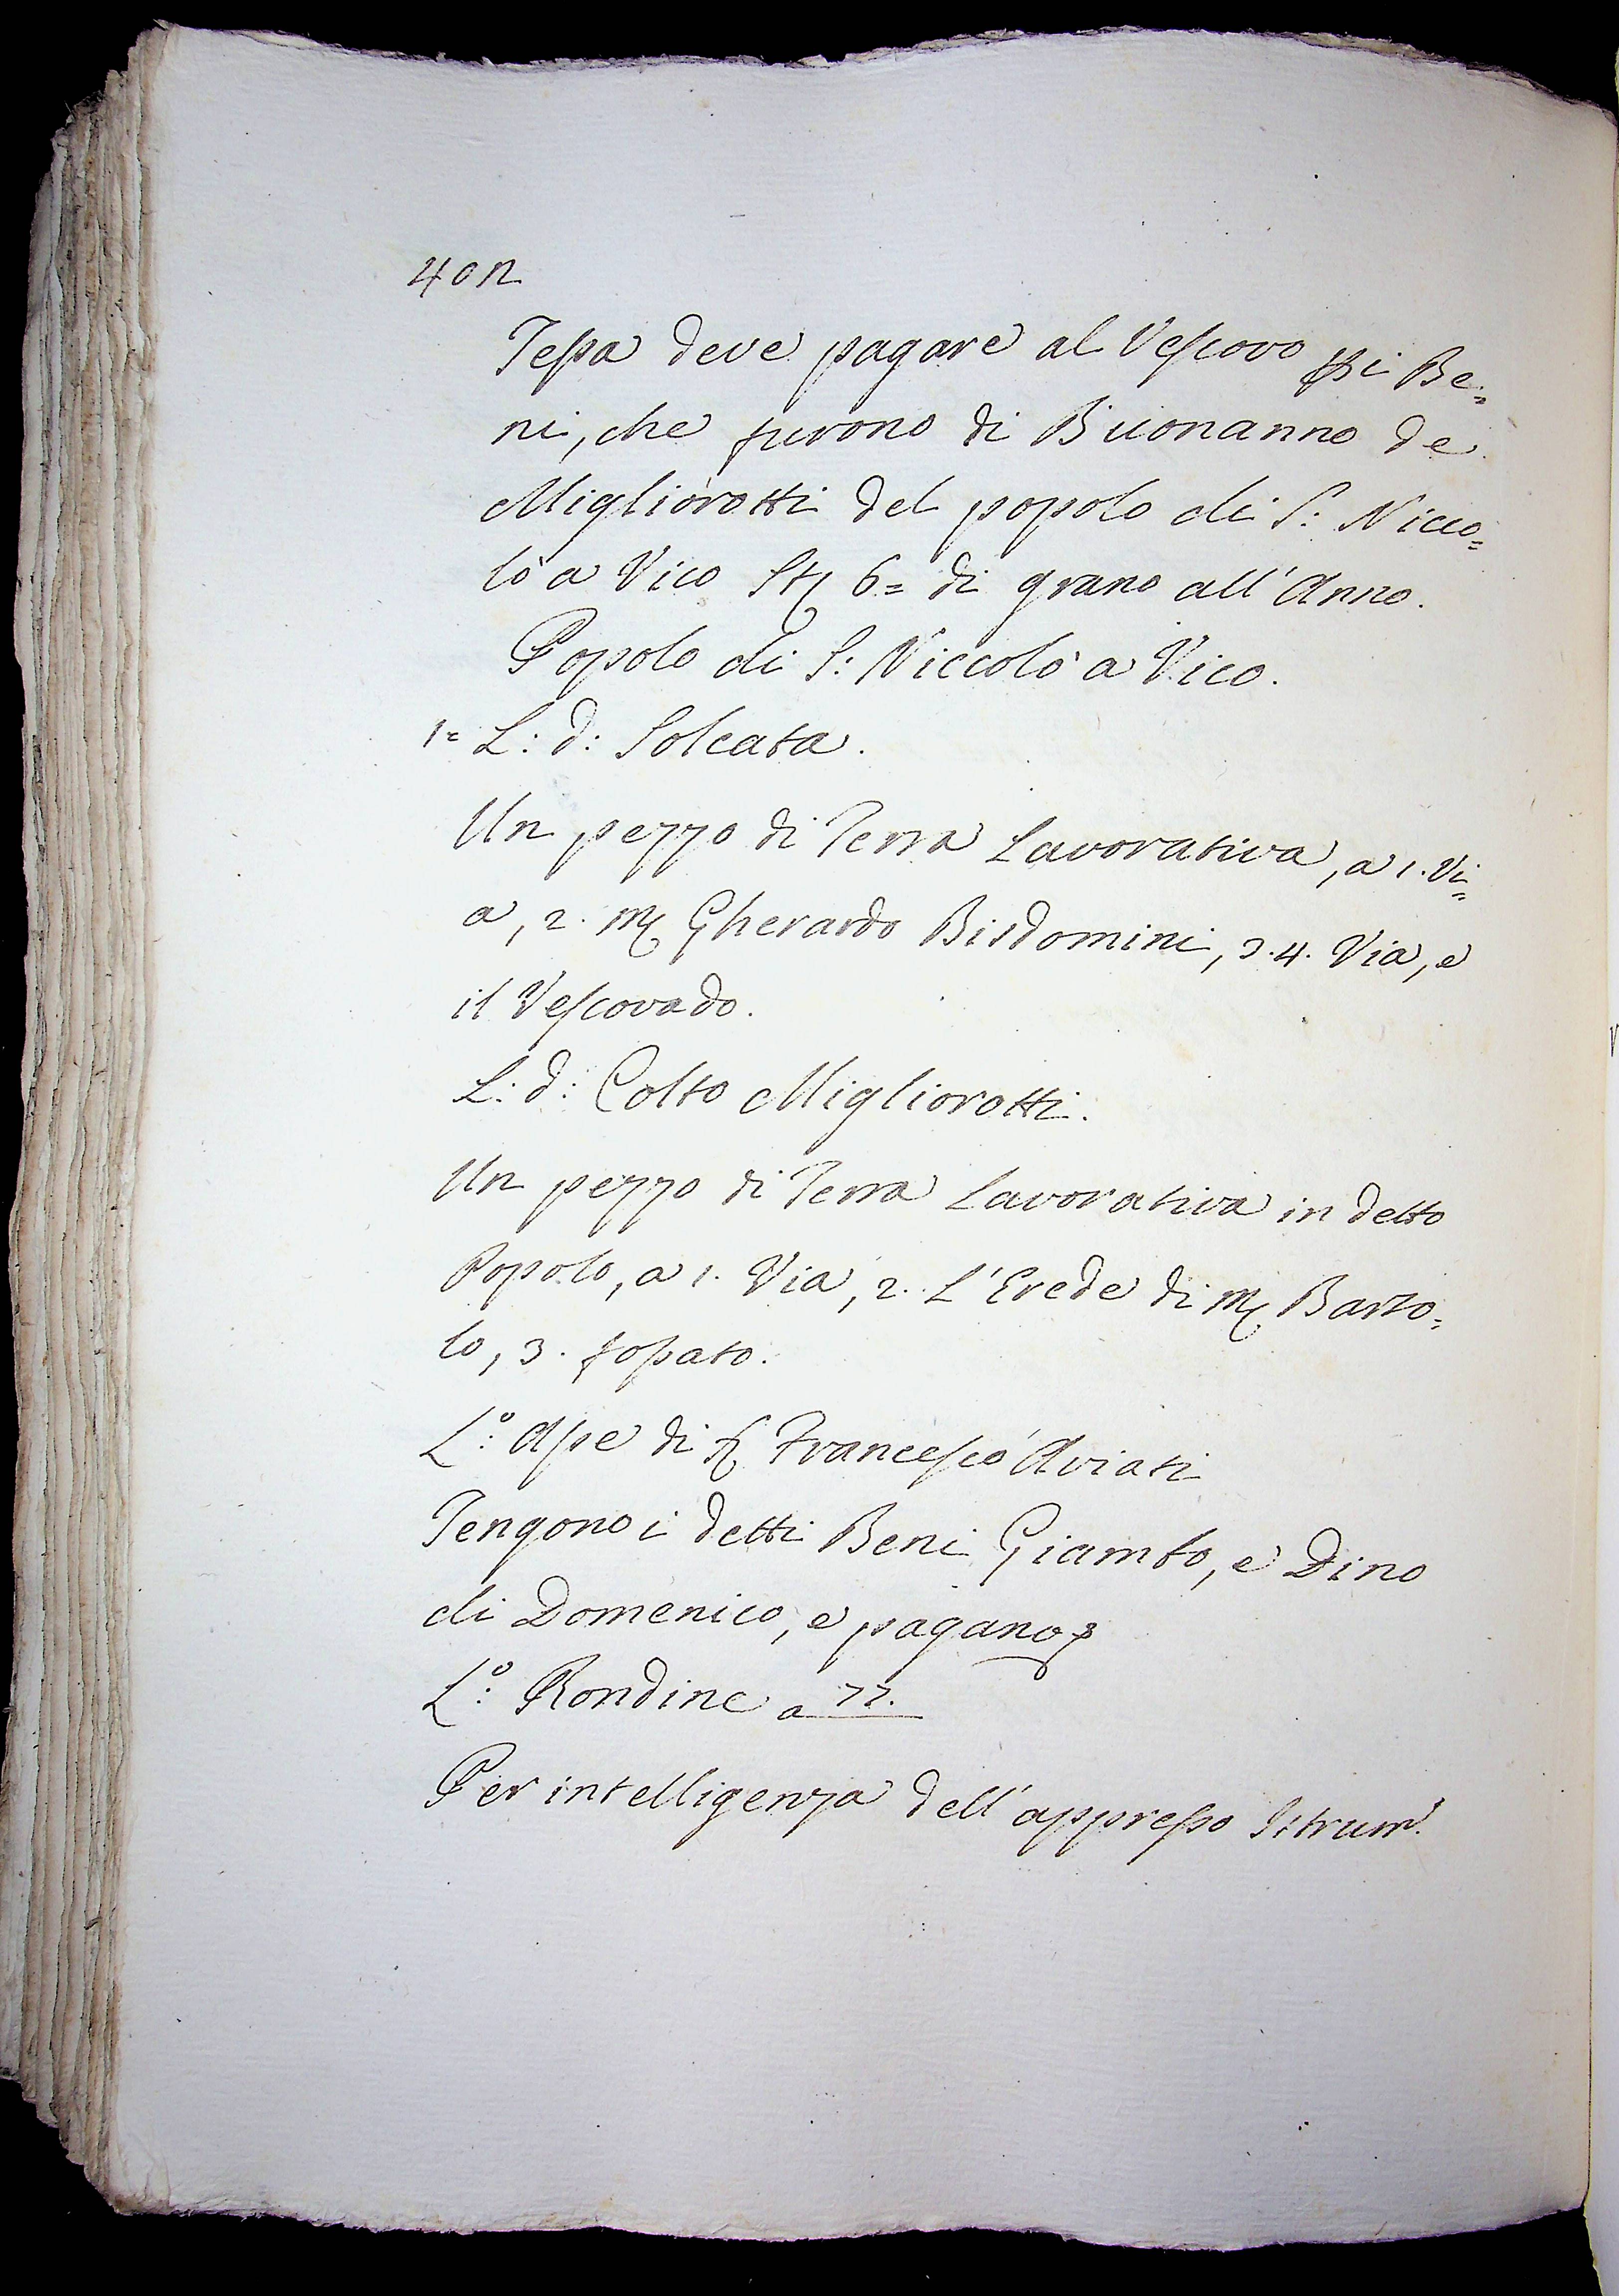 402
Tessa deve pagare al Vescovo ppi Be=
ni, che furono di Buonanno de
Migliorotti del popolo di S: Nicco=
lò a Vico St 6= di grano all'Anno.
Popolo di S: Niccolò a Vico.
1= L: d: Solcata.
Un pezzo di Terra Lavorativa, a 1. Vi=
a, 2. M Gherardo Bisdomini, 3.4. Via, e
il Vescovado.
L: d: Colto Migliorotti.
Un pezzo di Terra Lavorativa in detto
Popolo, a 1. Via, 2. L'Erede di M Barto=
lo, 3. fossato.
L:o Asse di f Francesco Aviati
Tengono i detti Beni Giambo, e Dino
di Domenico, e pagano
L:o Rondine a 77.
Per intelligenza dell'appresso Strum.